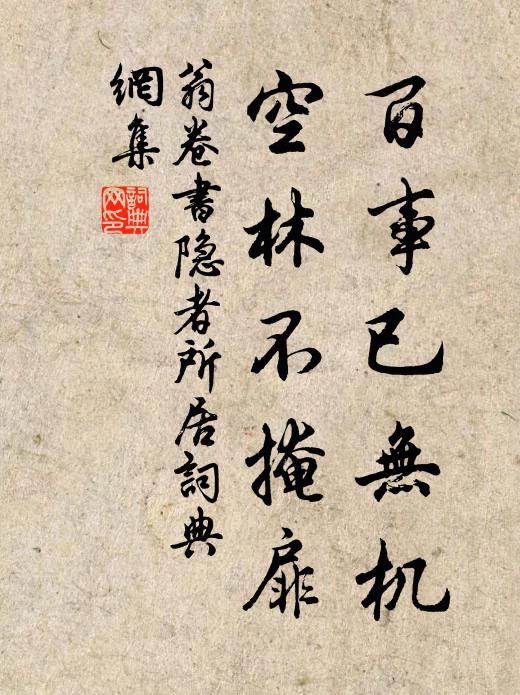 百事已無机
空林不掩扉
翁卷書隐者所居詞典
網集
詞典
网印